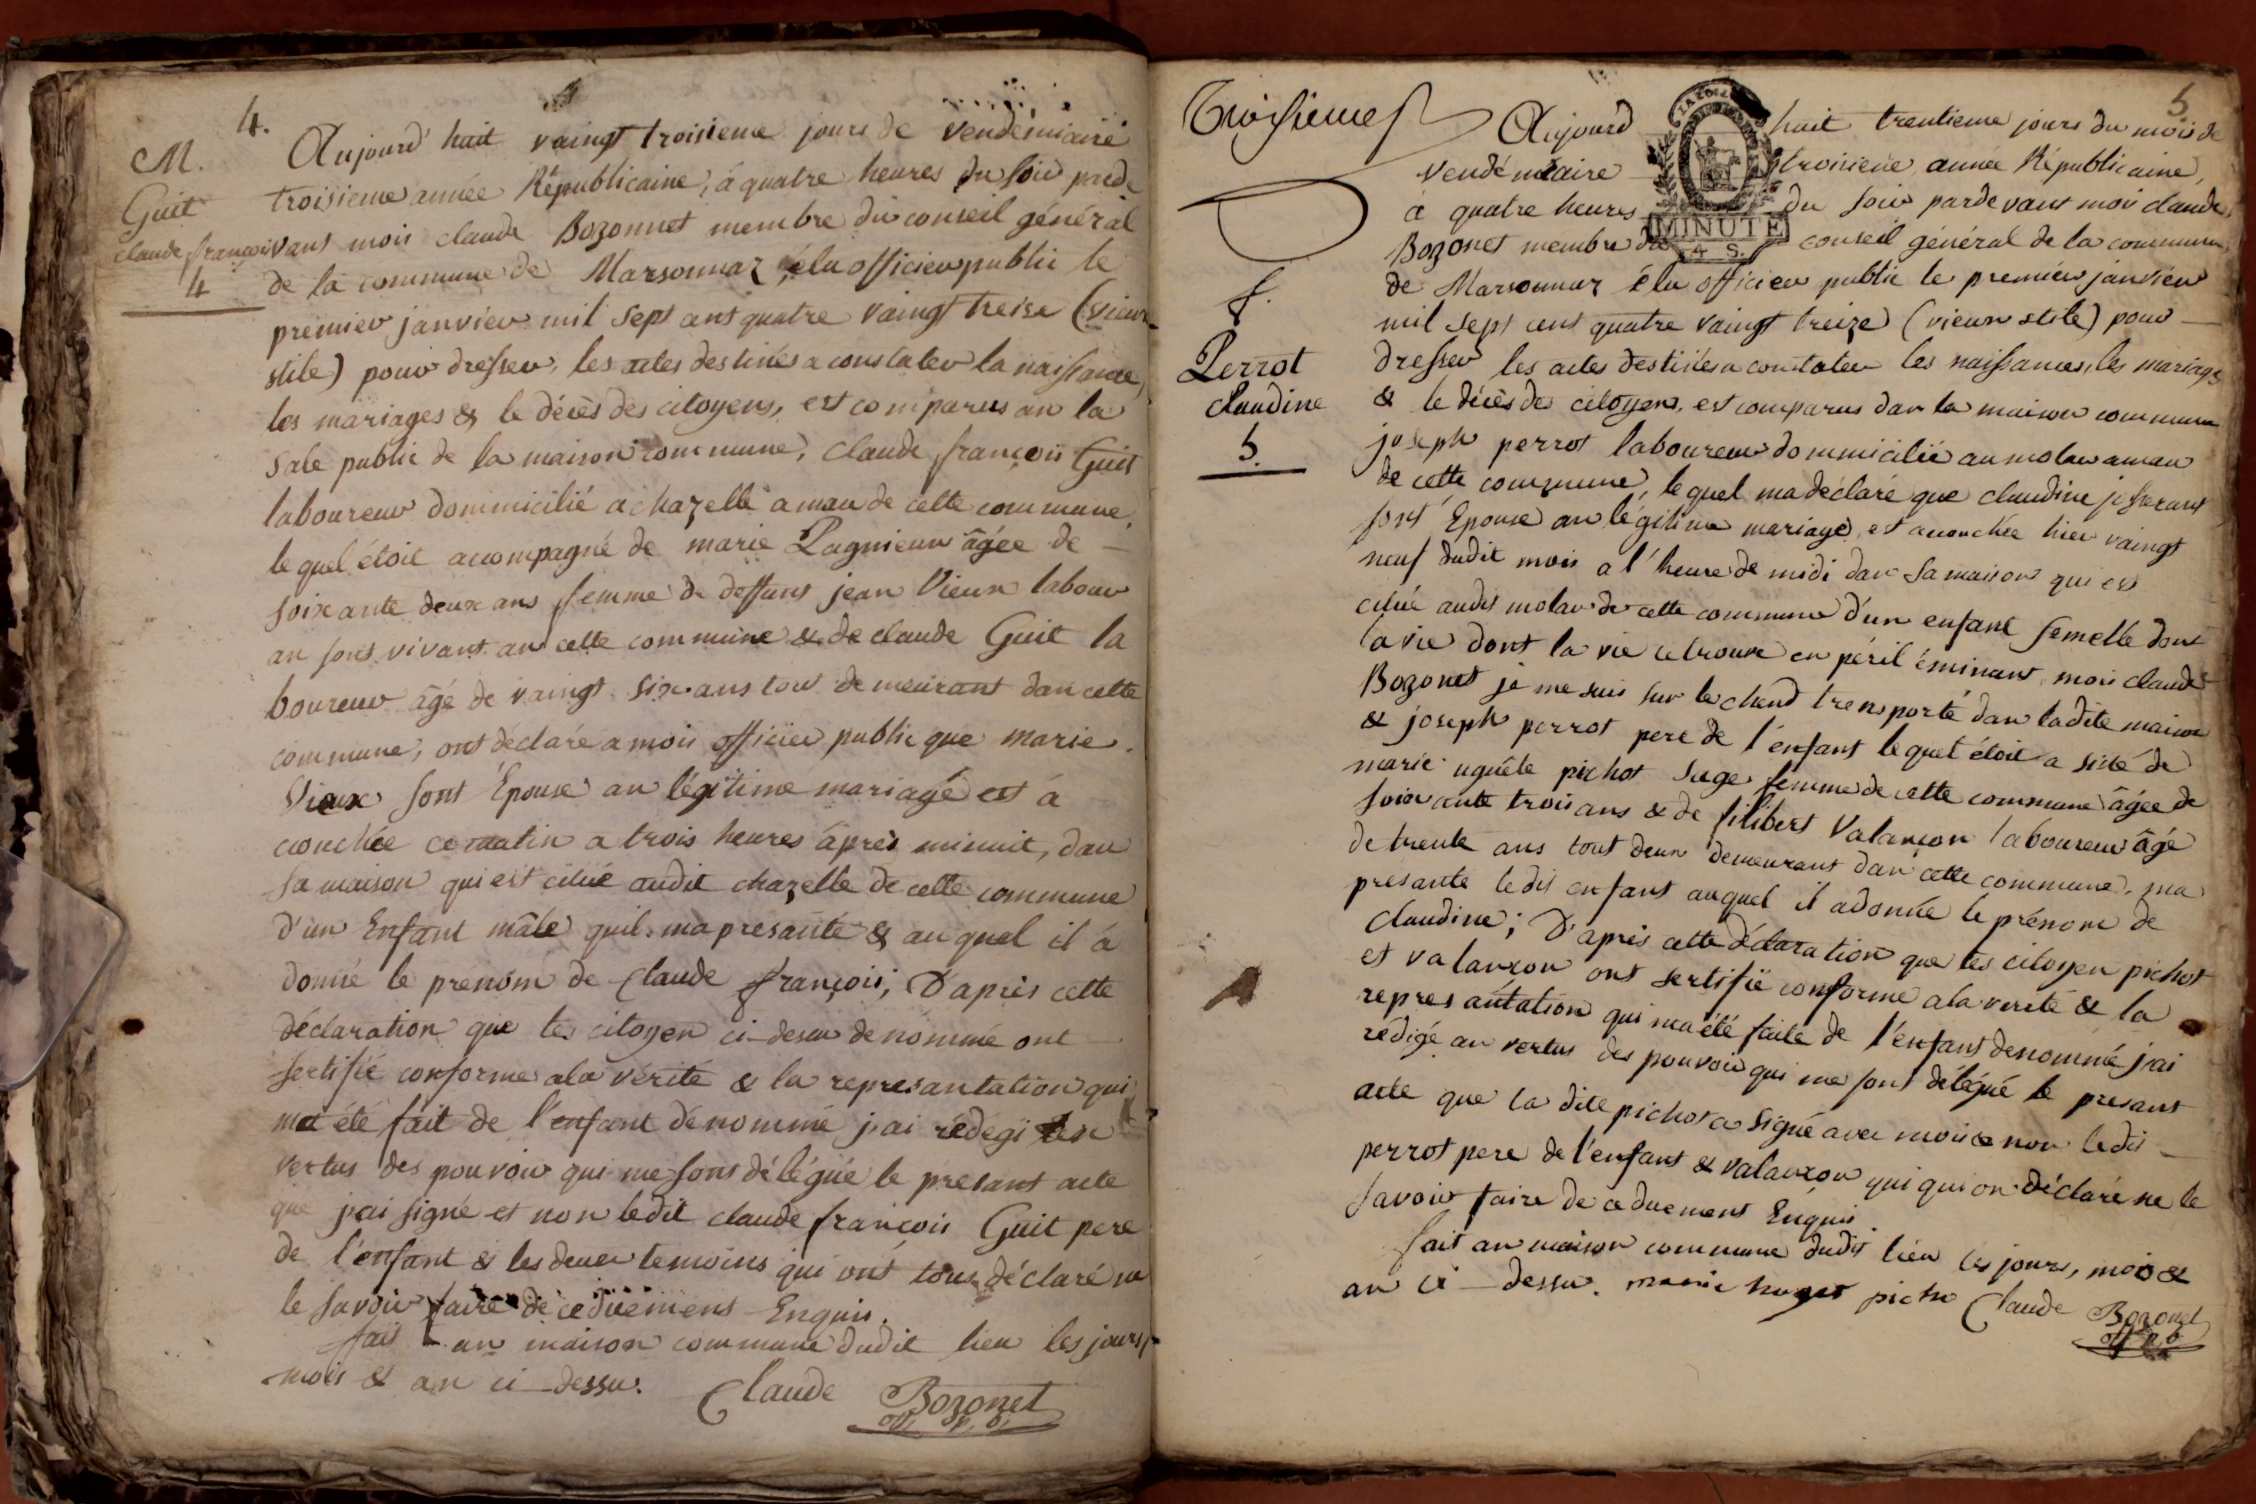 4.
M.
Guit
claude françois
4
Aujourd'huit vaingt troisieme jours de vendemiaire
troisieme année Républicaine, à quatre heures du soir parde
vant mois claude Bozonnet membre du conseil général
de la commune de Marsonnaz élu officier public le
premier janvier mil sept cent quatre vaingt treise (vieux
stile) pour dresser, les actes destinés a constater la naissance,
les mariages & le décès des citoyens, est comparus an la
sale public de la maison commune, Claude françois Guit
laboureur dommicilié a chazelle aman de cette commune,
lequel étoit accompagné de marie Pagnieux âgée de —
soixante deux ans femme de deffunt jean Vieux labour
an sont vivant an cette commune & de claude Guit la
boureur âgé de vaingt six ans tou demeurant dan cette
commune, ont déclaré a mois officier public que marie
Vieux sont Épouse an légitime mariage est à
couchée ce matin a trois heures âprès minuit, dan
sa maison qui est citué audit chazelle de cette commune
d'un Enfant mâle quil ma presanté & auquel il à
donné le prenom de Claude françois, D'après cette
déclaration que les citoyen ci-dessu denommé ont
sertifié conforme ala vérité & la represantation qui
ma été fait de l'enfant dénommé j'ai rédegi en
vertus des pouvoir qui me sont délégué le presant acte
que j'ai signé et non ledit claude françois Guit pere
de l'enfant & les deux temoins qui ont tous déclaré ne
le savoir faire de ce duement Enquis.
fait an maison commune dudit lieu les jours,
mois & an ci-dessu. Claude Bozonet
off. p. b.
5
Troisieme
f.
Perrot
claudine
5.
Aujourd huit trentieme jours du mois de
Vendémiaire troisieme année Républicaine,
à quatre heures du soir pardevant mois claude
MINUTE
4 S.
Bozonet membre du conseil général de la commune
de Marsonnaz élu officier public le premier janvier
mil sept cent quatre vaingt treize (vieux stile) pour —
dresser les actes destinés a constater les naissances, les mariage
& le décès des citoyen, est comparus dan la maison commune
joseph perrot laboureur dommicilié au molar aman
de cette commune, lequel ma déclaré que claudine
sont Epouse an légitime mariage, est acouchée hier vaingt
neuf dudit mois a l'heure de midi dan sa maison qui est
citué audit molar de cette commune d'un enfant femelle dont
la vie dont la vie ce trouve en péril éminant, mois claude
Bozonet je me suis sur le chand trensporté dan ladite maison
& joseph perrot pere de l'enfant lequel étoit a sisté de
marie uguéte pichot sage femme de cette commune âgée de
soixante trois ans & de filibert Valançon laboureur âgé
de trente ans tout deux demeurant dan cette commune, ma
presante ledit enfant auquel il a donnée le prénom de
Claudine; D'après cette déclaration que les citoyen pichot
et valançon ont sertifié conforme ala verité & la
represantation qui ma été faite de l'enfant denommé j'ai
redigé an vertus des pouvoir qui me sont délégué le presant
acte que la dite pichot a signé avec mois & non ledit —
perrot pere de l'enfant & valançon qui qui on déclaré ne le
savoir faire de ce duement Enquis
fait an maison commune dudit lieu les jours, mois &
an ci-dessu. marie huget picho Claude Bozonet
off. p. b.